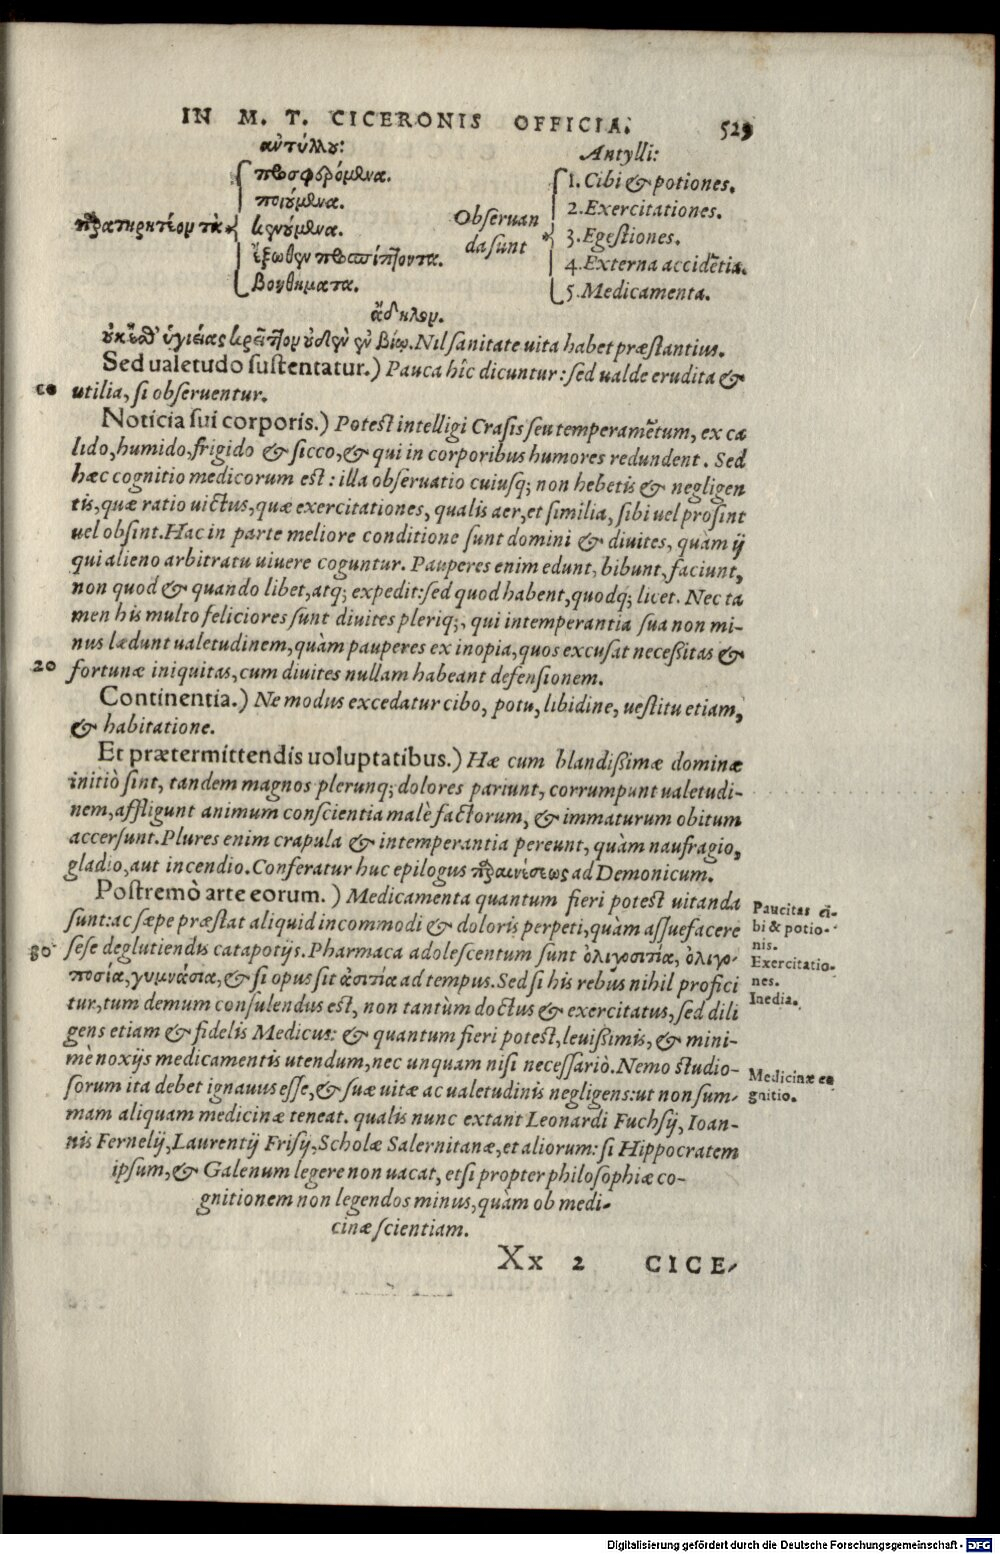 IN M. T. CICERONIS OFFICIA. 529
ἀντύλλου:
προσφερόμενα.
ποιούμενα.
παρατηρητέον τὰ κενούμενα.
ἔξωθεν προσπίπτοντα.
βοηθήματα.
Antylli:
1. Cibi & potiones.
2. Exercitationes.
Obseruan
da sunt 3. Egestiones.
4. Externa accidẽtia.
5. Medicamenta.
ἄδηλον.
οὐκ ἔσθ' ὑγιείας κρεῖττον οὐδὲν ἐν βίῳ. Nil sanitate uita habet præstantius.
Sed ualetudo sustentatur.) Pauca hîc dicuntur: sed ualde erudita &
utilia, si obseruentur.
Noticia sui corporis.) Potest intelligi Crasis seu temperamẽtum, ex ca
lido, humido, frigido & sicco, & qui in corporibus humores redundent. Sed
hæc cognitio medicorum est: illa obseruatio cuiusq; non hebetis & negligen
tis, quæ ratio uictus, quæ exercitationes, qualis aer, et similia, sibi uel prosint
uel obsint. Hac in parte meliore conditione sunt domini & diuites, quàm ij
qui alieno arbitratu uiuere coguntur. Pauperes enim edunt, bibunt, faciunt,
non quod & quando libet, atq; expedit: sed quod habent, quodq; licet. Nec ta
men his multo feliciores sunt diuites pleriq;, qui intemperantia sua non mi-
nus lædunt ualetudinem, quàm pauperes ex inopia, quos excusat necessitas &
20 fortunæ iniquitas, cum diuites nullam habeant defensionem.
Continentia.) Ne modus excedatur cibo, potu, libidine, uestitu etiam,
& habitatione.
Et prætermittendis uoluptatibus.) Hæ cum blandissimæ dominæ
initiò sint, tandem magnos plerunq; dolores pariunt, corrumpunt ualetudi-
nem, affligunt animum conscientia malè factorum, & immaturum obitum
accersunt. Plures enim crapula & intemperantia pereunt, quàm naufragio,
gladio, aut incendio. Conferatur huc epilogus παραινέσεως ad Demonicum.
Postremò arte eorum.) Medicamenta quantum fieri potest uitanda
sunt: ac sæpe præstat aliquid incommodi & doloris perpeti, quàm assuefacere
30 sese deglutiendis catapotijs. Pharmaca adolescentum sunt ὀλιγοσιτία, ὀλιγο-
ποσία, γυμνάσια, & si opus sit ἀσιτία ad tempus. Sed si his rebus nihil profici
tur, tum demum consulendus est, non tantùm doctus & exercitatus, sed dili
gens etiam & fidelis Medicus: & quantum fieri potest, leuissimis, & mini-
mè noxijs medicamentis utendum, nec unquam nisi necessariò. Nemo studio-
sorum ita debet ignauus esse, & suæ uitæ ac ualetudinis negligens: ut non sum-
mam aliquam medicinæ teneat. qualis nunc extant Leonardi Fuchsij, Ioan-
nis Fernelij, Laurentij Frisij, Scholæ Salernitanæ, et aliorum: si Hippocratem
ipsum, & Galenum legere non uacat, etsi propter philosophiæ co-
gnitionem non legendos minus, quàm ob medi-
cinæ scientiam.
Paucitas ci-
bi & potio-
nis.
Exercitatio-
nes.
Inedia.
Medicinæ co
gnitio.
Xx 2 CICE-
Digitalisierung gefördert durch die Deutsche Forschungsgemeinschaft - DFG